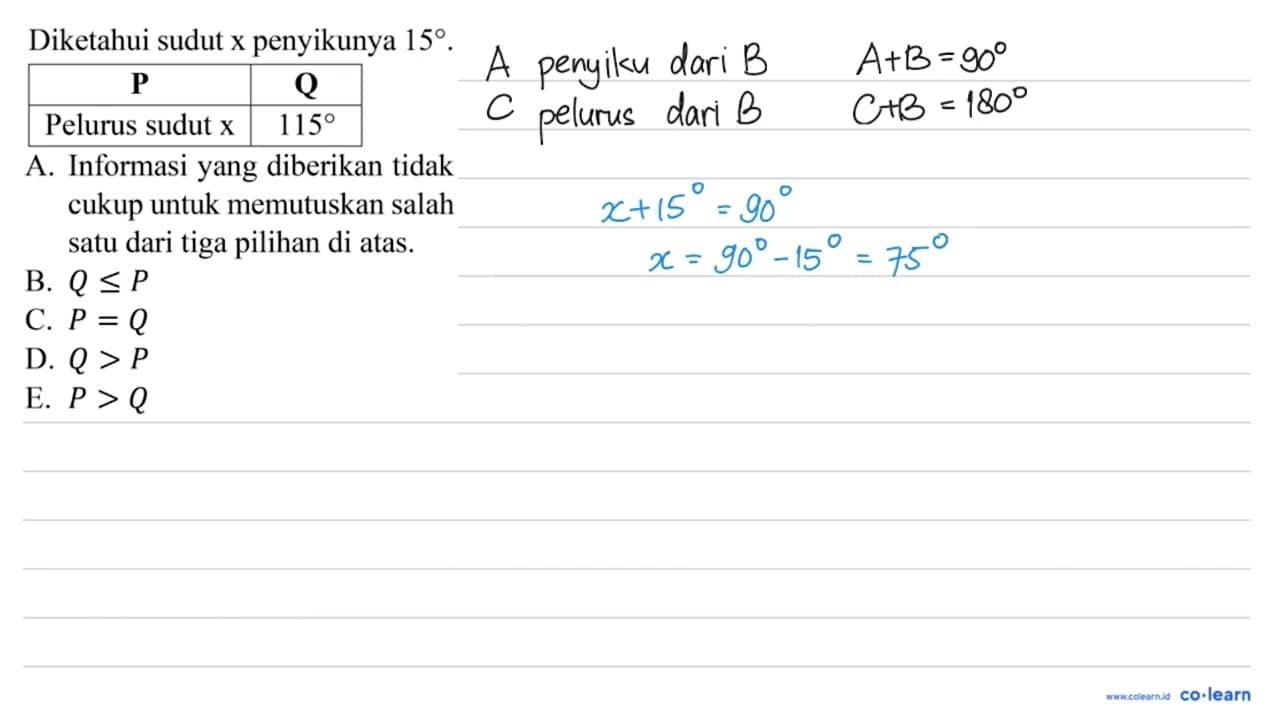 Diketahui sudut x penyikunya 15°.
P Q
Pelurus sudut x 115°
A. Informasi yang diberikan tidak
cukup untuk memutuskan salah
satu dari tiga pilihan di atas.
B. Q ≤ P
C. P = Q
D. Q > P
E. P > Q
A penyiku dari B A+B = 90°
C pelurus dari B C+B = 180°
x+15° = 90°
x = 90° - 15° = 75°
www.colearn.id co·learn